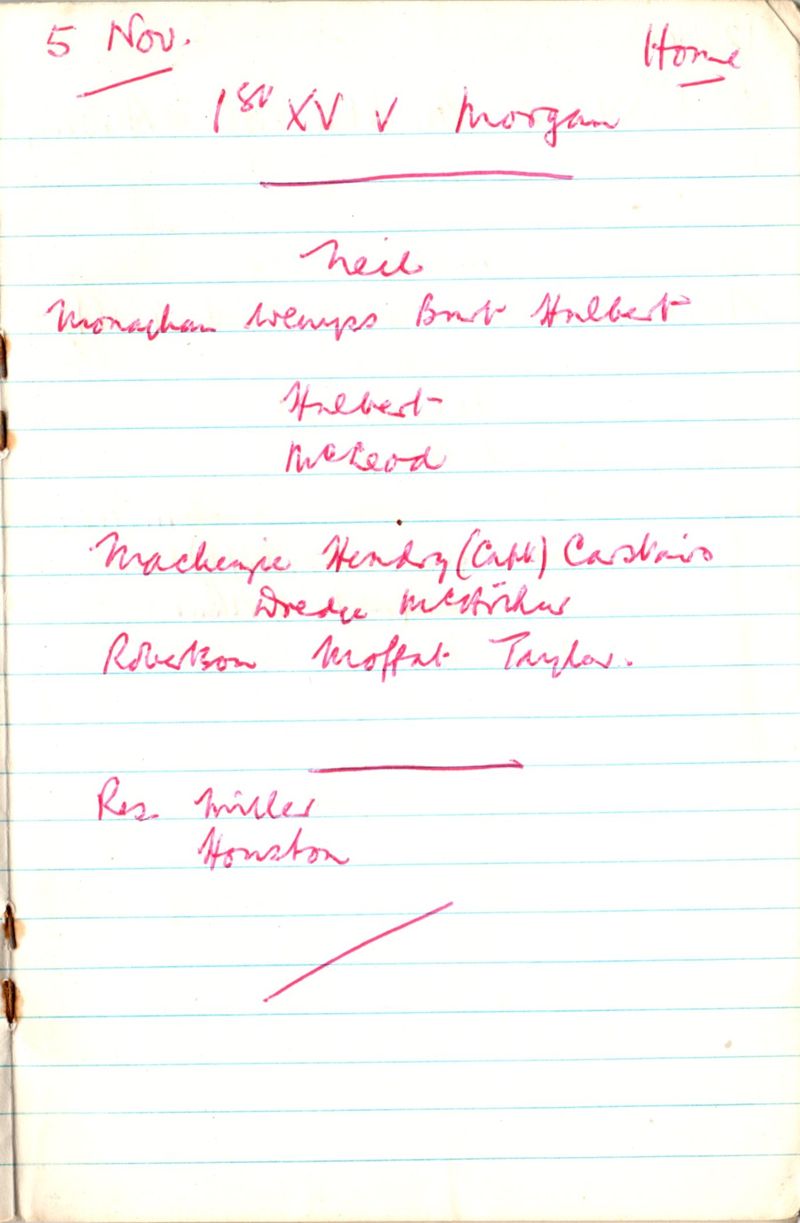 5 Nov. Home
1st XV v Morgan
Neil
Monaghan Wemyss Burt Hulbert
Hulbert
McLeod
Mackenzie Hendry (Capt) Carstairs
Dredge McArthur
Robertson Moffat Taylor.
Res. Miller
Houston